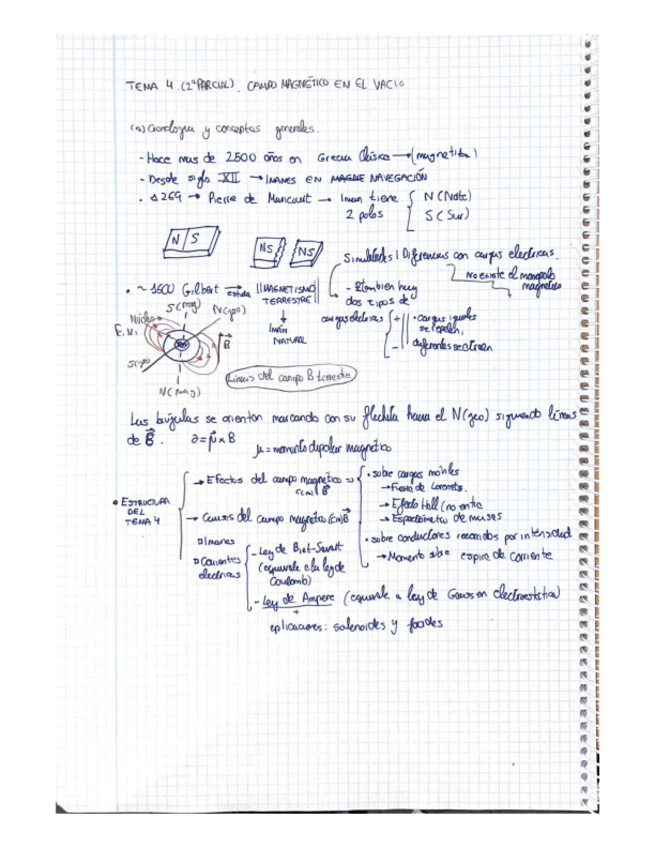 TEMA 4. (2ºPARCIAL). CAMPO MAGNÉTICO EN EL VACIO
(a) Cronología y conceptos generales.
- Hace mas de 2500 años en Grecia Clásica → (magnetita)
- Desde siglo XII → IMANES EN NAVEGACIÓN
· 1269 → Pierre de Maricourt → Iman tiene 2 polos
N (Norte)
S (Sur)
N S
NS
NS
Similitudes | Diferencias con cargas electricas.
No existe el monopolo magnético
· ~ 1600 Gilbert → estudia || MAGNETISMO TERRESTRE ||
↓
IMÁN NATURAL
- también hay dos tipos de cargas eléctricas
+
-
· cargas iguales se repelen,
diferentes se atraen
S (mag)
N (geo)
Núcleo
B
S (geo)
N (mag)
Líneas del campo B terrestre
Las brújulas se orientan marcando con su flechita hacia el N(geo) siguiendo líneas
de B.
μ x B
μ = momento dipolar magnético
· ESTRUCTURA DEL TEMA 4
→ Efectos del campo magnético
B
· sobre cargas móviles
→ Fuerza de Lorentz.
→ Efecto Hall (no entra
→ Espectómetro de masas
· sobre conductores recorridos por intensidad
→ Momento sobre espira de corriente
→ Causas del campo magnético B
Imanes
Corrientes electricas
- Ley de Biot-Savart
(equivale a la ley de
Coulomb)
- Ley de Ampere (equivale a ley de Gauss en electrostática)
+
aplicaciones: solenoides y